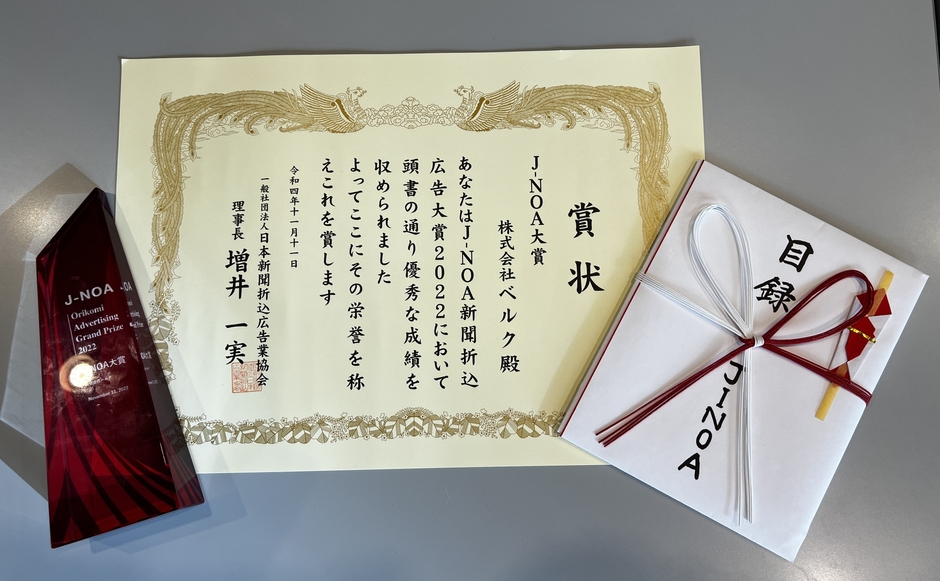 賞状
J-NOA大賞
株式会社ベルク 殿
あなたはJ-NOA新聞折込
広告大賞2022において
頭書の通り優秀な成績を
収められました
よってここにその栄誉を称
えこれを賞します
令和四年十一月十一日
一般社団法人日本新聞折込広告業協会
理事長 増井 一実
J-NOA
Orikomi
Advertising
Grand Prize
2022
NOA大賞
November 11, 2022
目録
JINOA